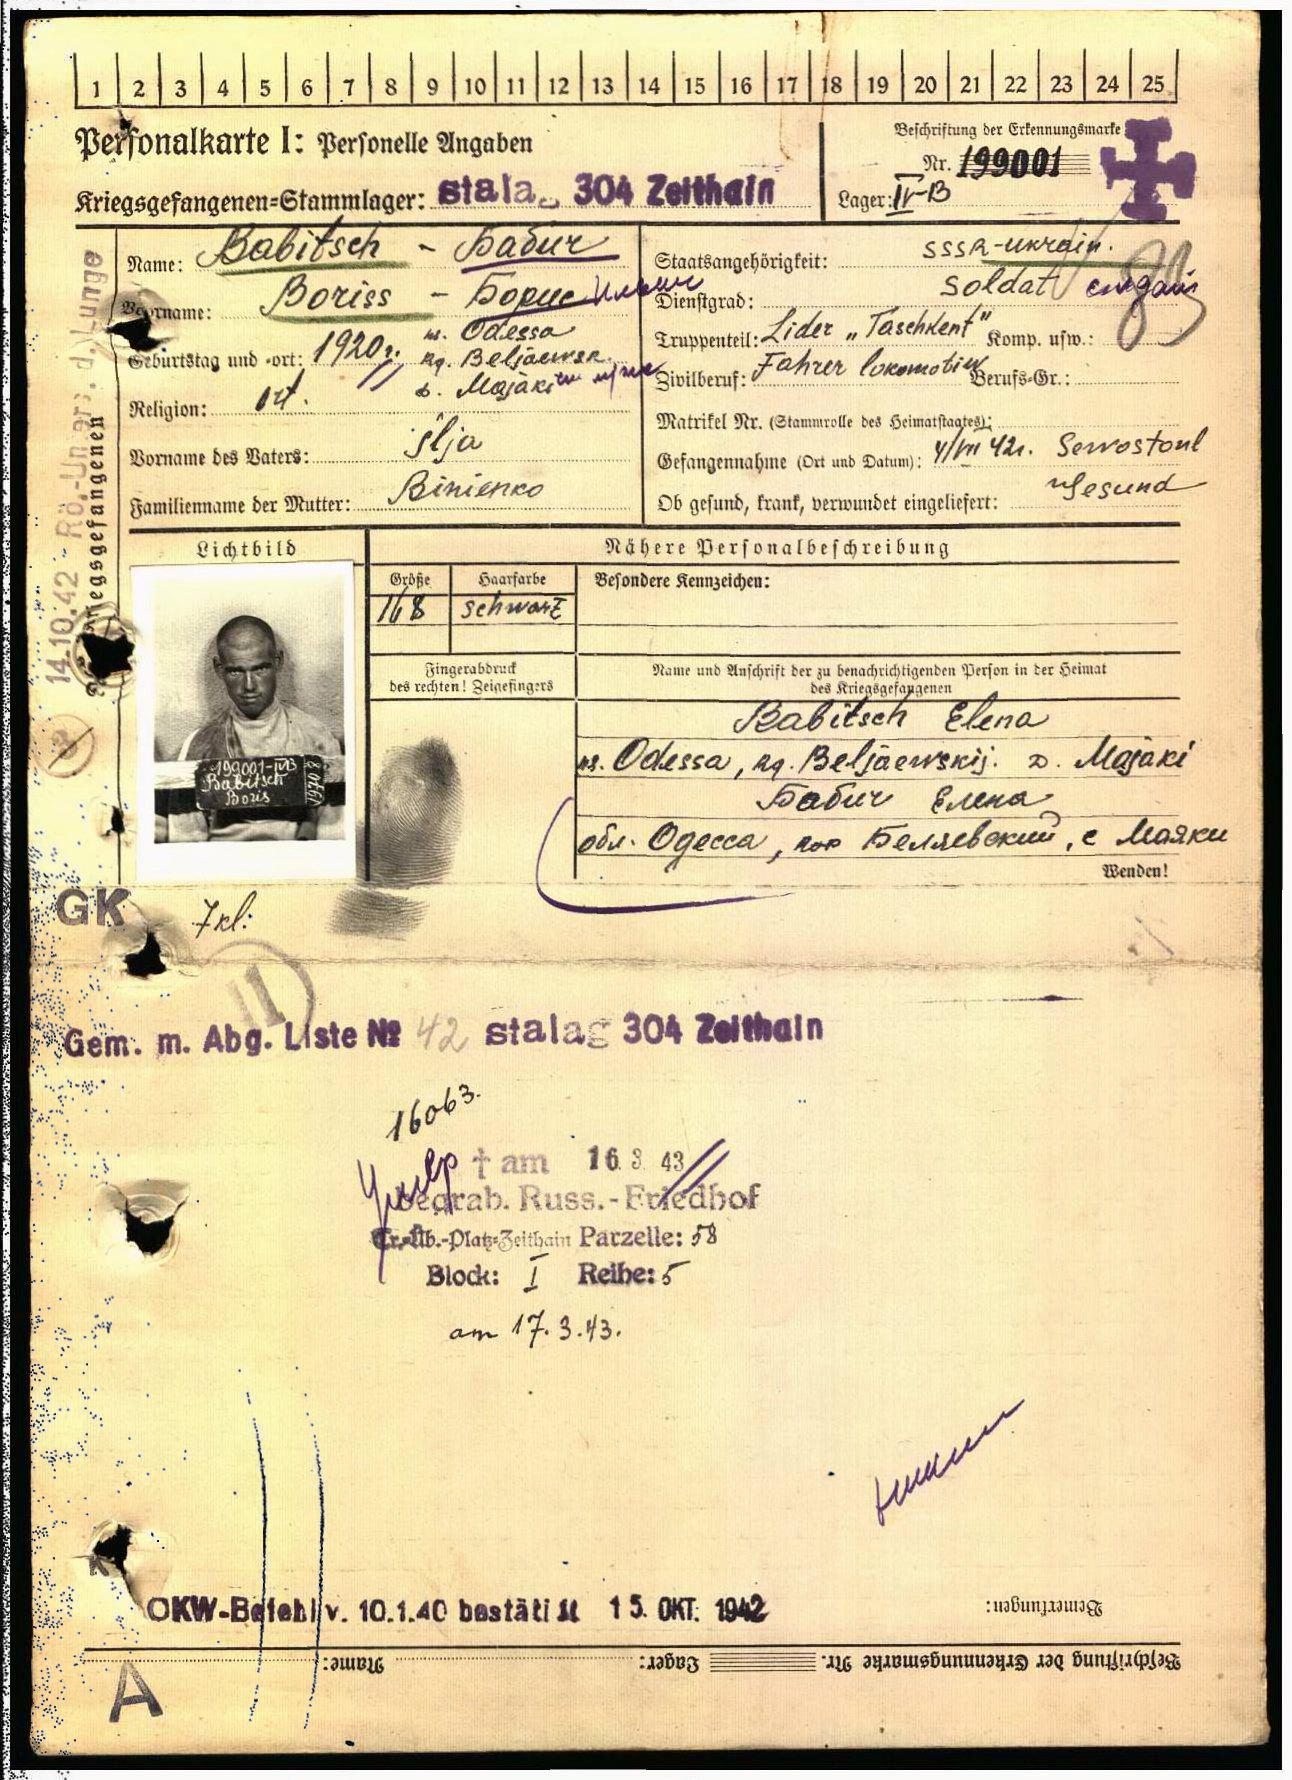 1 2 3 4 5 6 7 8 9 10 11 12 13 14 15 16 17 18 19 20 21 22 23 24 25
Personalkarte I: Personelle Angaben
Kriegsgefangenen-Stammlager: Stalag 304 Zeithain
Beschriftung der Erkennungsmarke
Nr. 199001
Lager: IV-B
Name: Babitsch - Бабич
Vorname: Boriss - Борис Ильич
Geburtstag und -ort: 1920г. Odessa
Beljaewsk.
d. Majaki
Religion: ort.
Vorname des Vaters: Ilja
Familienname der Mutter: Binienko
Staatsangehörigkeit: SSSR-Ukrain.
Dienstgrad: Soldat
Truppenteil: Lider „Taschkent" Komp. usw.:
Zivilberuf: Fahrer lokomotiw Berufs-Gr.:
Matrikel Nr. (Stammrolle des Heimatstaates):
Gefangennahme (Ort und Datum): 4/VII 42г. Sewostopl
Ob gesund, krank, verwundet eingeliefert: Gesund
14.10.42 - Rö.-Unter: d. Lunge
des Kriegsgefangenen
Lichtbild
Nähere Personalbeschreibung
Größe
168
Haarfarbe
schwarz
Besondere Kennzeichen:
Fingerabdruck
des rechten! Zeigefingers
Name und Anschrift der zu benachrichtigenden Person in der Heimat
des Kriegsgefangenen
Babitsch Elena
Odessa, Beljaewskij. d. Majaki
Бабич Елена
обл. Одесса, Беляевский, с Маяки
Wenden!
199001-IVB
Babitsch
Boris
GK
7 kl:
11
Gem. m. Abg. Liste № 42 Stalag 304 Zeithain
16063.
† am 16. 3. 43
Begrab. Russ.-Friedhof
Tr.-Üb.-Platz-Zeithain Parzelle: 58
Block: I Reihe: 5
am 17.3.43.
OKW-Befehl v. 10.1.40 bestätigt 15. OKT. 1942
Bemerkungen:
Beschriftung der Erkennungsmarke Nr. Lager: Name:
A